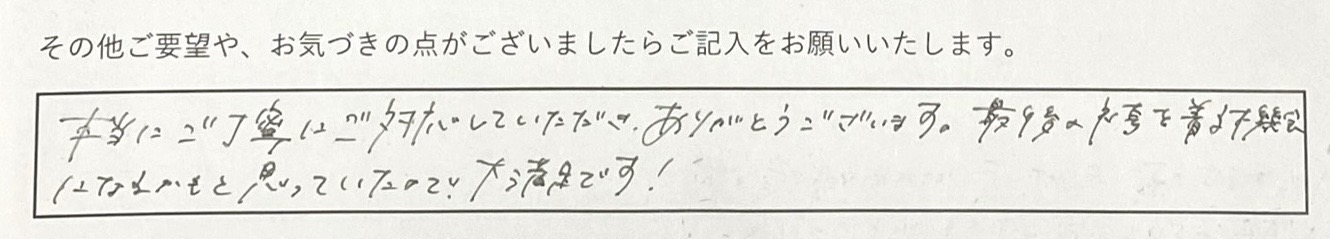 その他ご要望や、お気づきの点がございましたらご記入をお願いいたします。
本当にご丁寧にご対応していただき、ありがとうございます。最後の衣裳を着る機会
になるかもと思っていたので、大満足です!